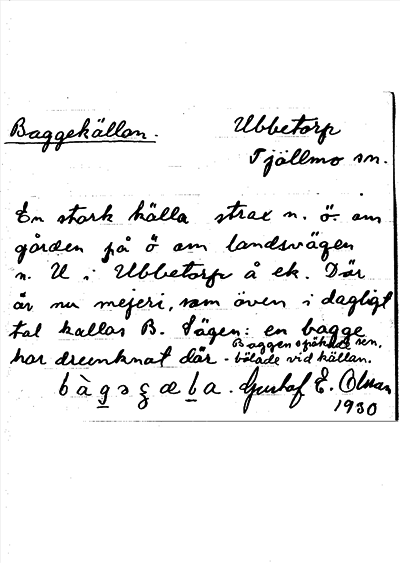 Baggekällan.
Ubbetorp
Tjällmo sn.
En stark källa strax n. ö. om
gården på ö om landsvägen
n. U i Ubbetorp å ek. Där
är nu mejeri, som även i dagligt
tal kallas B. Sägen: en bagge
har drunknat där - Baggen spökade sen,
bölade vid källan.
Gustaf E. Olsson
1930